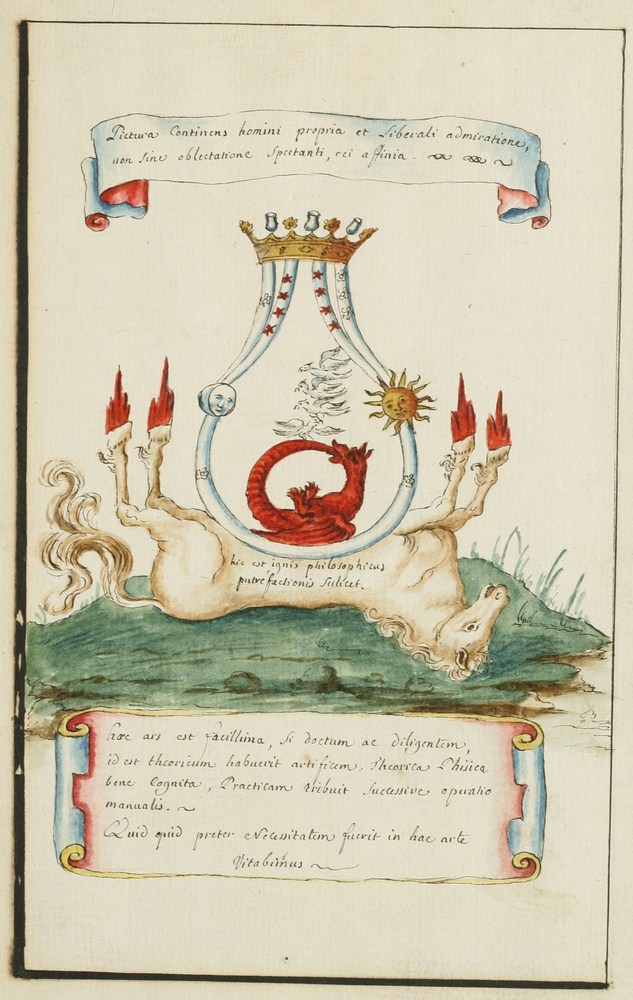 Pictura Continens homini propria et Liberali admiratione,
non sine oblectatione Spectanti, rei affinia.
hic est ignis philosophicus
putrefactionis Scilicet.
hæc ars est facillima, si doctum ac diligentem,
id est theoricum habuerit artificem. Theorica Phisica
bene Cognita, Practicam tribuit Successive operatio
manualis.
Quid quid preter Necessitatem fuerit in hac arte
Vitabimus